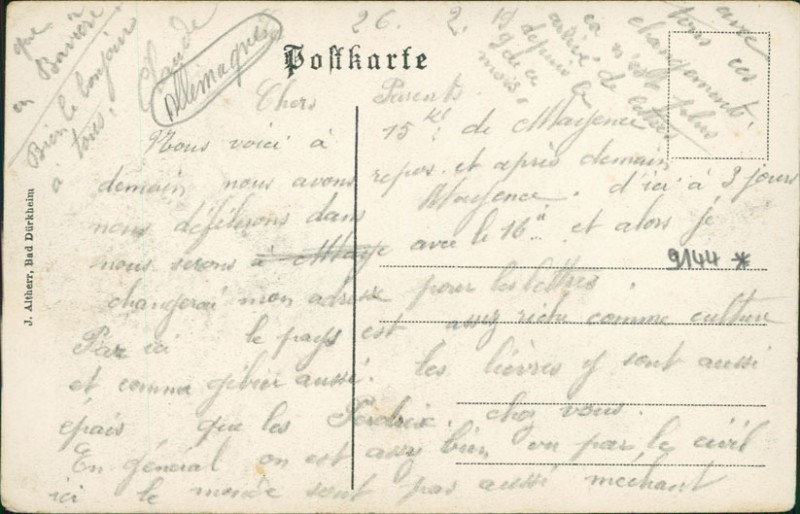 26. 2. 19
Postkarte
Allemagne
Chers Parents
Nous voici à 15 kl. de Mayence
demain nous avons repos. et après demain
nous défilerons dans Mayence. d'ici à 3 jours
nous serons à Maye avec le 16e et alors je
changerai mon adresse pour les lettres.
Par ici le pays est assez riche comme culture
et comme gibier aussi. les lièvres y sont aussi
épais que les Perdrix chez vous.
En général on est assez bien vu par le civil
ici le monde sont pas aussi mechant
que
en Bavière
Bien le bonjour
à tous.
Claude
avec
tous ces
changements.
ça n'est plus
arrivé de lettres
depuis le
9 de ce
mois.
9144 *
J. Altherr, Bad Dürkheim